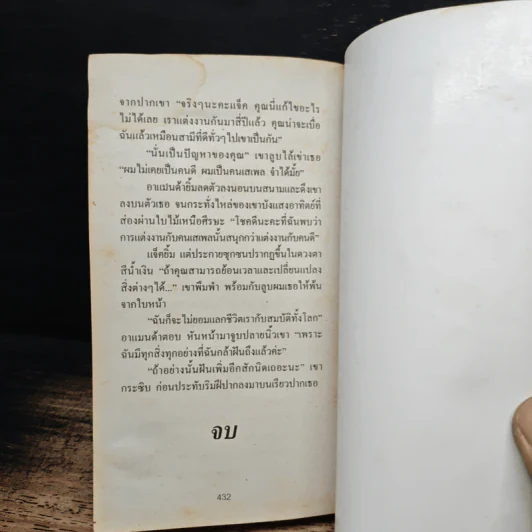 จากปากเขา “จริงๆนะคะแจ็ค คุณนี่แก้ไขอะไร
ไม่ได้เลย เราแต่งงานกันมาสี่ปีแล้ว คุณน่าจะเบื่อ
ฉันแล้วเหมือนสามีที่ดีทั่วๆไปเขาเป็นกัน”
“นั่นเป็นปัญหาของคุณ” เขาลูบไล้เข่าเธอ
“ผมไม่เคยเป็นคนดี ผมเป็นคนเสเพล จำได้มั้ย”
อาแมนด้ายิ้มลดตัวลงนอนบนสนามและดึงเขา
ลงบนตัวเธอ จนกระทั่งไหล่ของเขาบังแสงอาทิตย์ที่
ส่องผ่านใบไม้เหนือศีรษะ “โชคดีนะคะที่ฉันพบว่า
การแต่งงานกับคนเสเพลนั้นสนุกกว่าแต่งงานกับคนดี”
แจ็คยิ้ม แต่ประกายซุกซนปรากฏขึ้นในดวงตา
สีน้ำเงิน “ถ้าคุณสามารถย้อนเวลาและเปลี่ยนแปลง
สิ่งต่างๆได้...” เขาพึมพำ พร้อมกับลูบผมเธอให้พ้น
จากใบหน้า
“ฉันก็จะไม่ยอมแลกชีวิตเรากับสมบัติทั้งโลก”
อาแมนด้าตอบ หันหน้ามาจูบปลายนิ้วเขา “เพราะ
ฉันมีทุกสิ่งทุกอย่างที่ฉันกล้าฝันถึงแล้วค่ะ”
“ถ้าอย่างนั้นฝันเพิ่มอีกสักนิดเถอะนะ” เขา
กระซิบ ก่อนประทับริมฝีปากลงมาบนเรียวปากเธอ
จบ
432